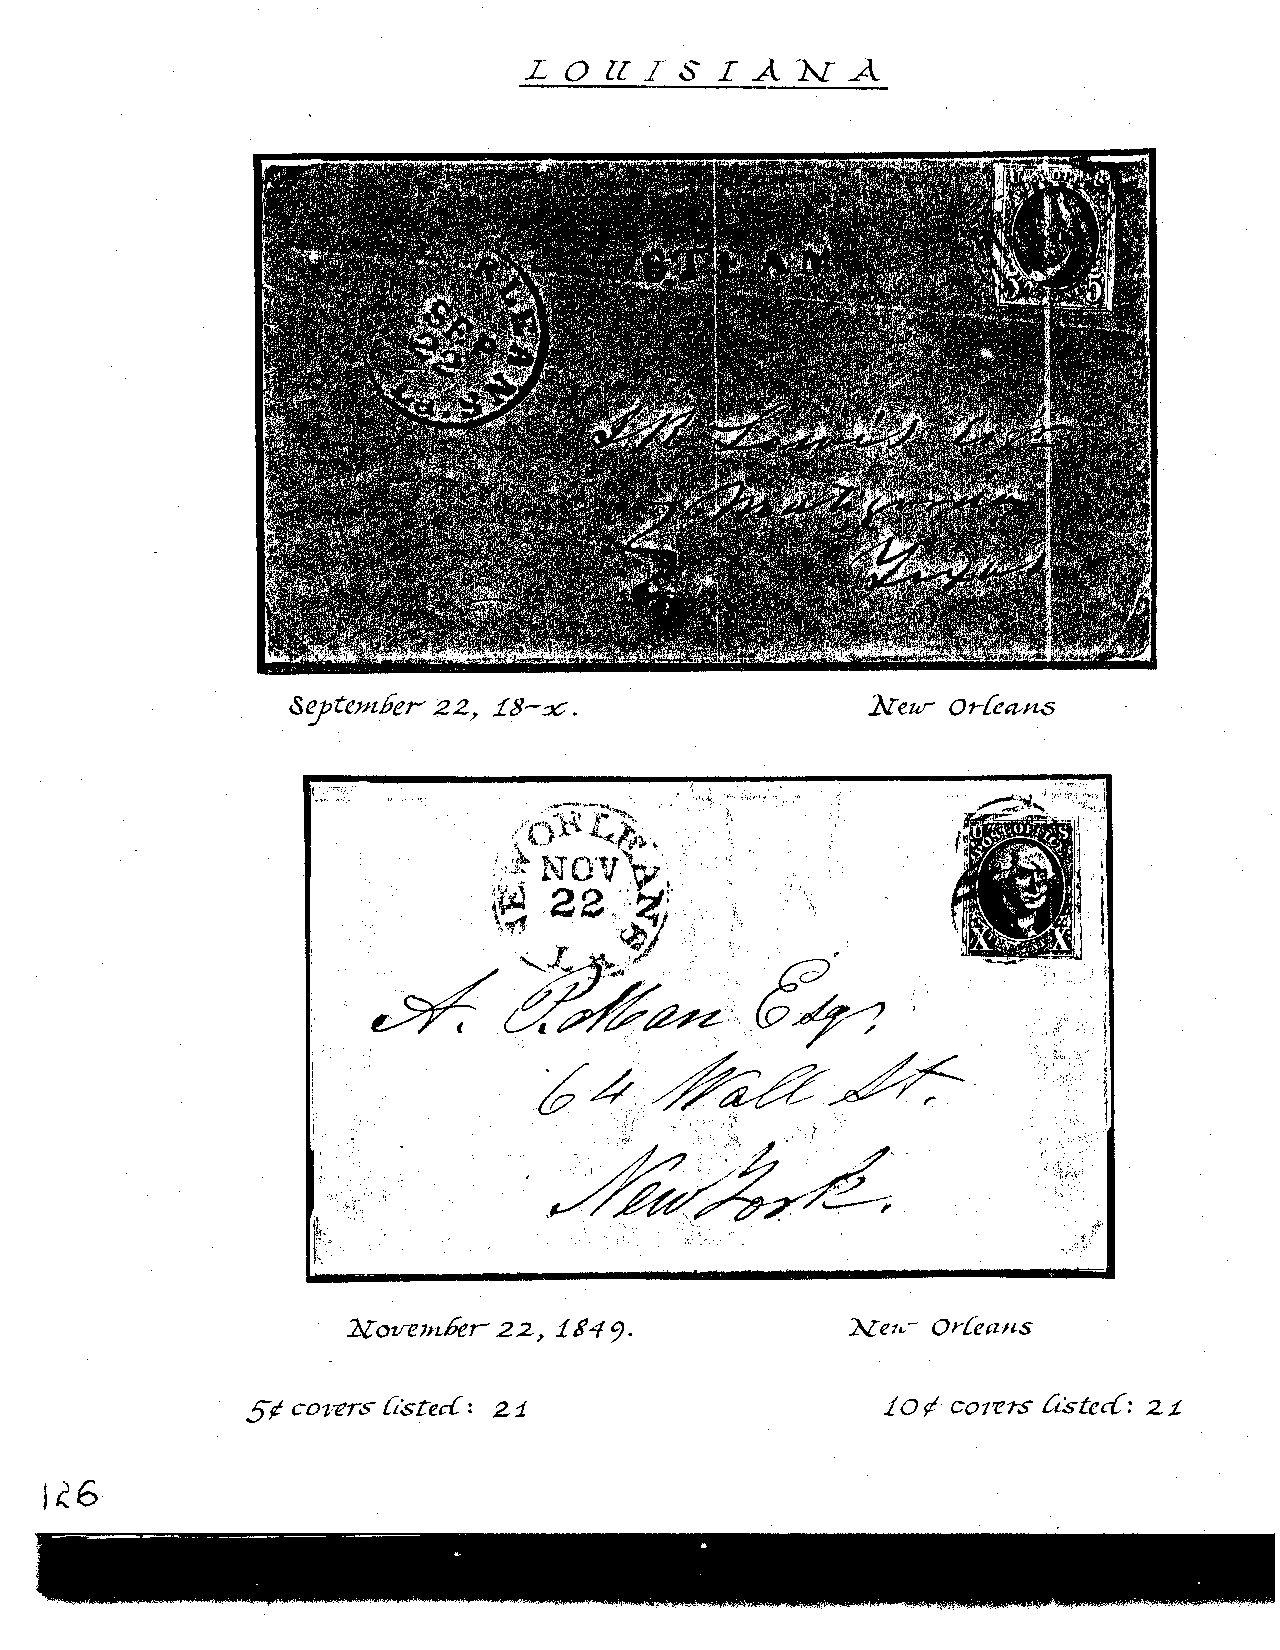 LOUISIANA
STEAM
5
LEANS
SEP
Lewis
Texas
September 22, 18-x. New Orleans
ORLEANS
NOV
22
LA
X X
A. P. Man Esqr,
64 Wall St.
New York.
November 22, 1849. New Orleans
5¢ covers listed: 21 10¢ covers listed: 21
126